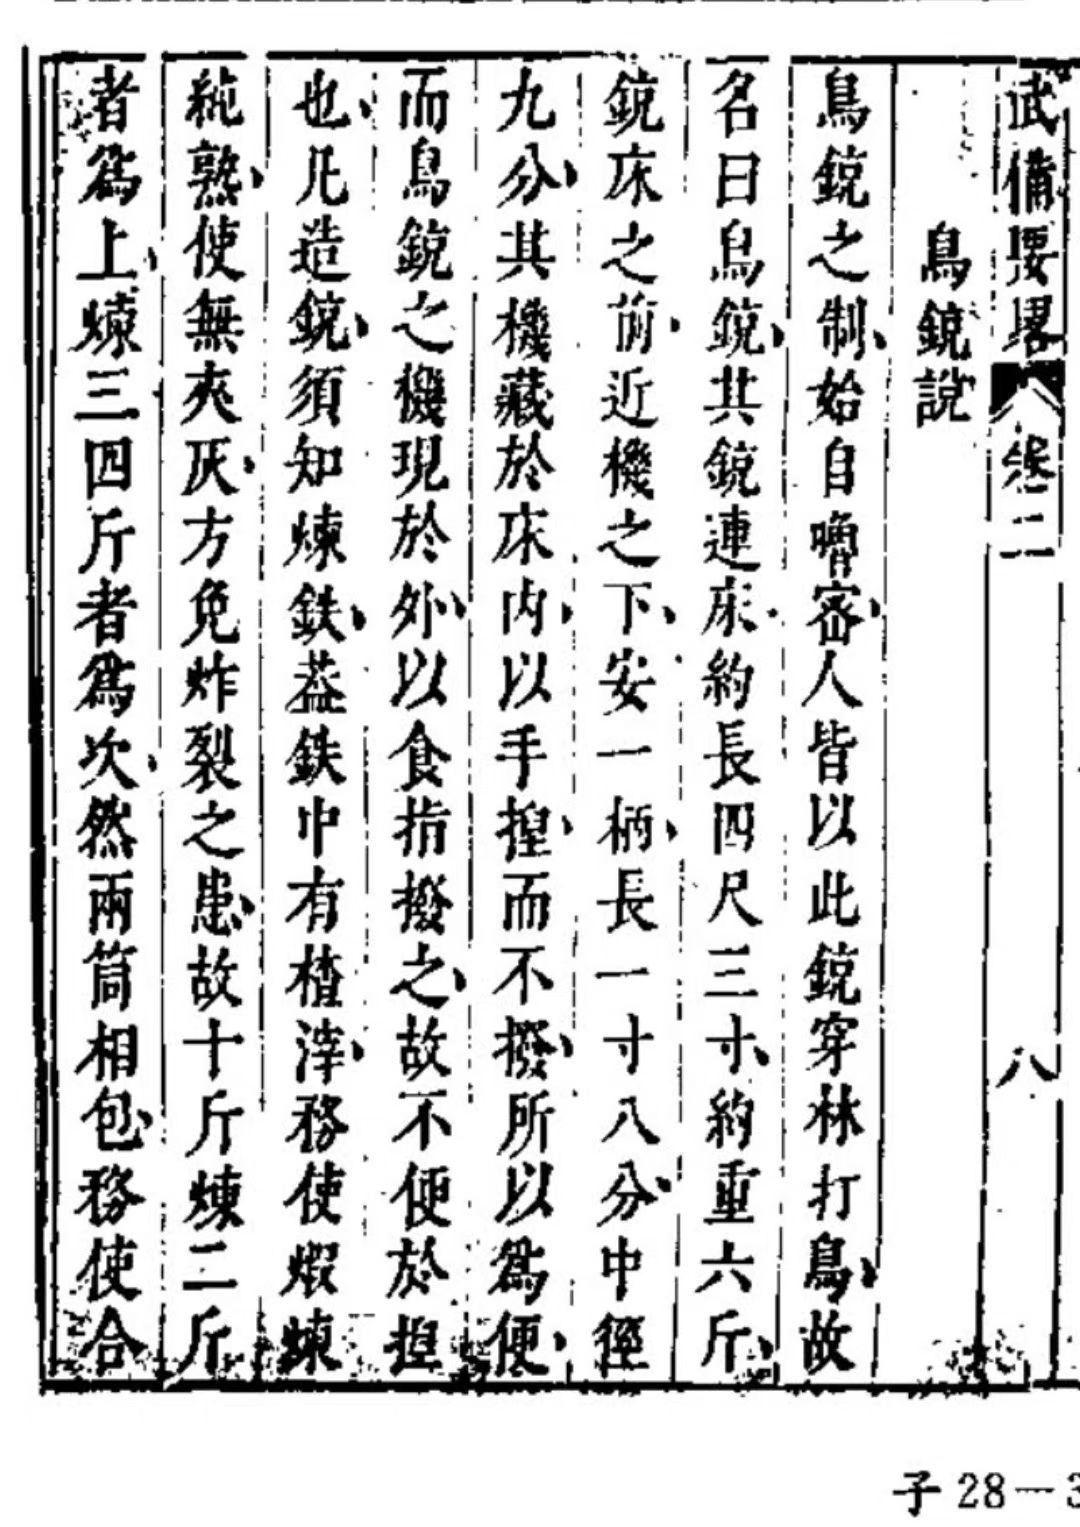 武備要畧 卷二 八
鳥銃說
鳥銃之制、始自嚕密、人皆以此銃穿林打鳥、故
名曰鳥銃、其銃連床、約長四尺三寸、約重六斤、
銃床之前、近機之下、安一柄、長一寸八分、中徑
九分、其機藏於床內、以手揑、而不撥、所以爲便、
而鳥銃之機現於外、以食指撥之、故不便於揑
也、凡造銃、須知煉鉄、葢鉄中有楂滓、務使煆煉
純熟、使無夾灰、方免炸裂之患、故十斤煉二斤
者爲上、煉三四斤者爲次、然兩筒相包、務使合
子28—3